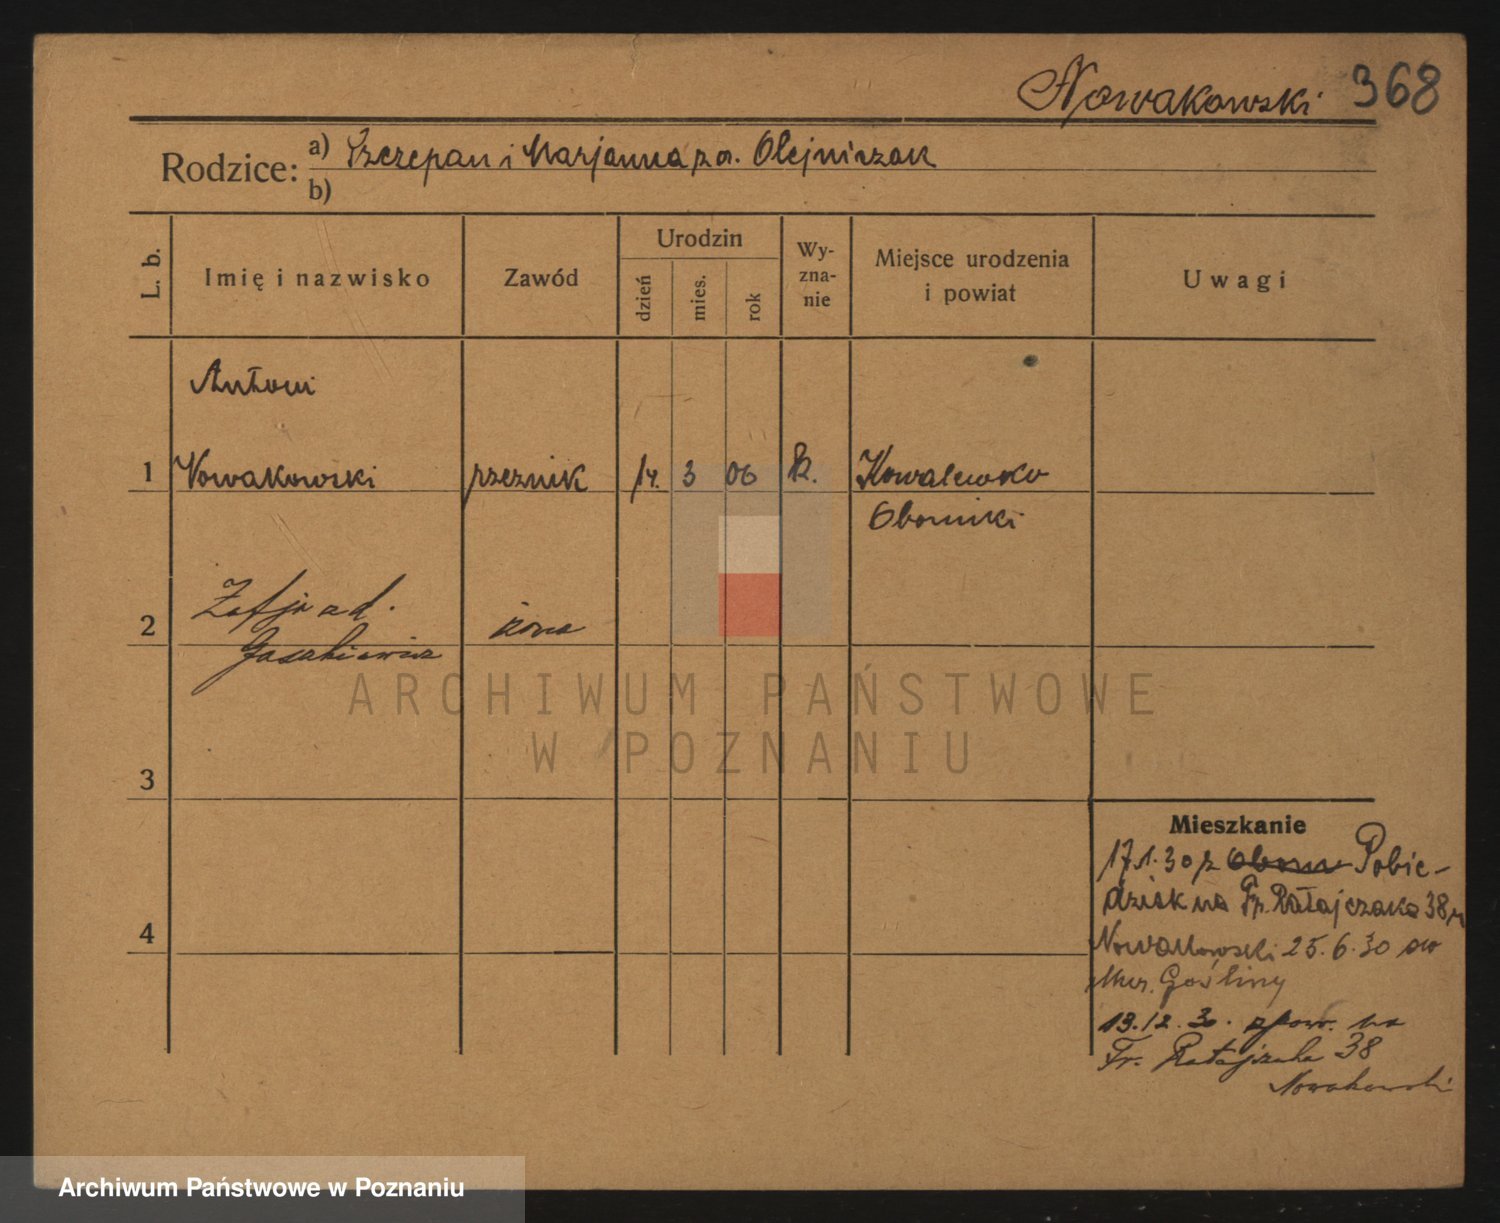 Nowakowski 368
Rodzice: a) Szczepan i Marjanna z d. Olejniczak
b)
L. b. Imię i nazwisko Zawód Urodzin dzień mies. rok Wy-zna-nie Miejsce urodzenia i powiat Uwagi
Antoni
1 Nowakowski rzeźnik 14. 3 06 Kowalewko
Oborniki
2 Zofja z d. żona
Jaszkiewicz
ARCHIWUM PAŃSTWOWE
W POZNANIU
3
Mieszkanie
17.1.30 z Pobie-
dzisk na Fr. Ratajczaka 38
4
Nowakowski 25.6.30 do
Mur. Gośliny
13.12.30. z pow. na
Fr. Ratajczaka 38
Nowakowski
Archiwum Państwowe w Poznaniu